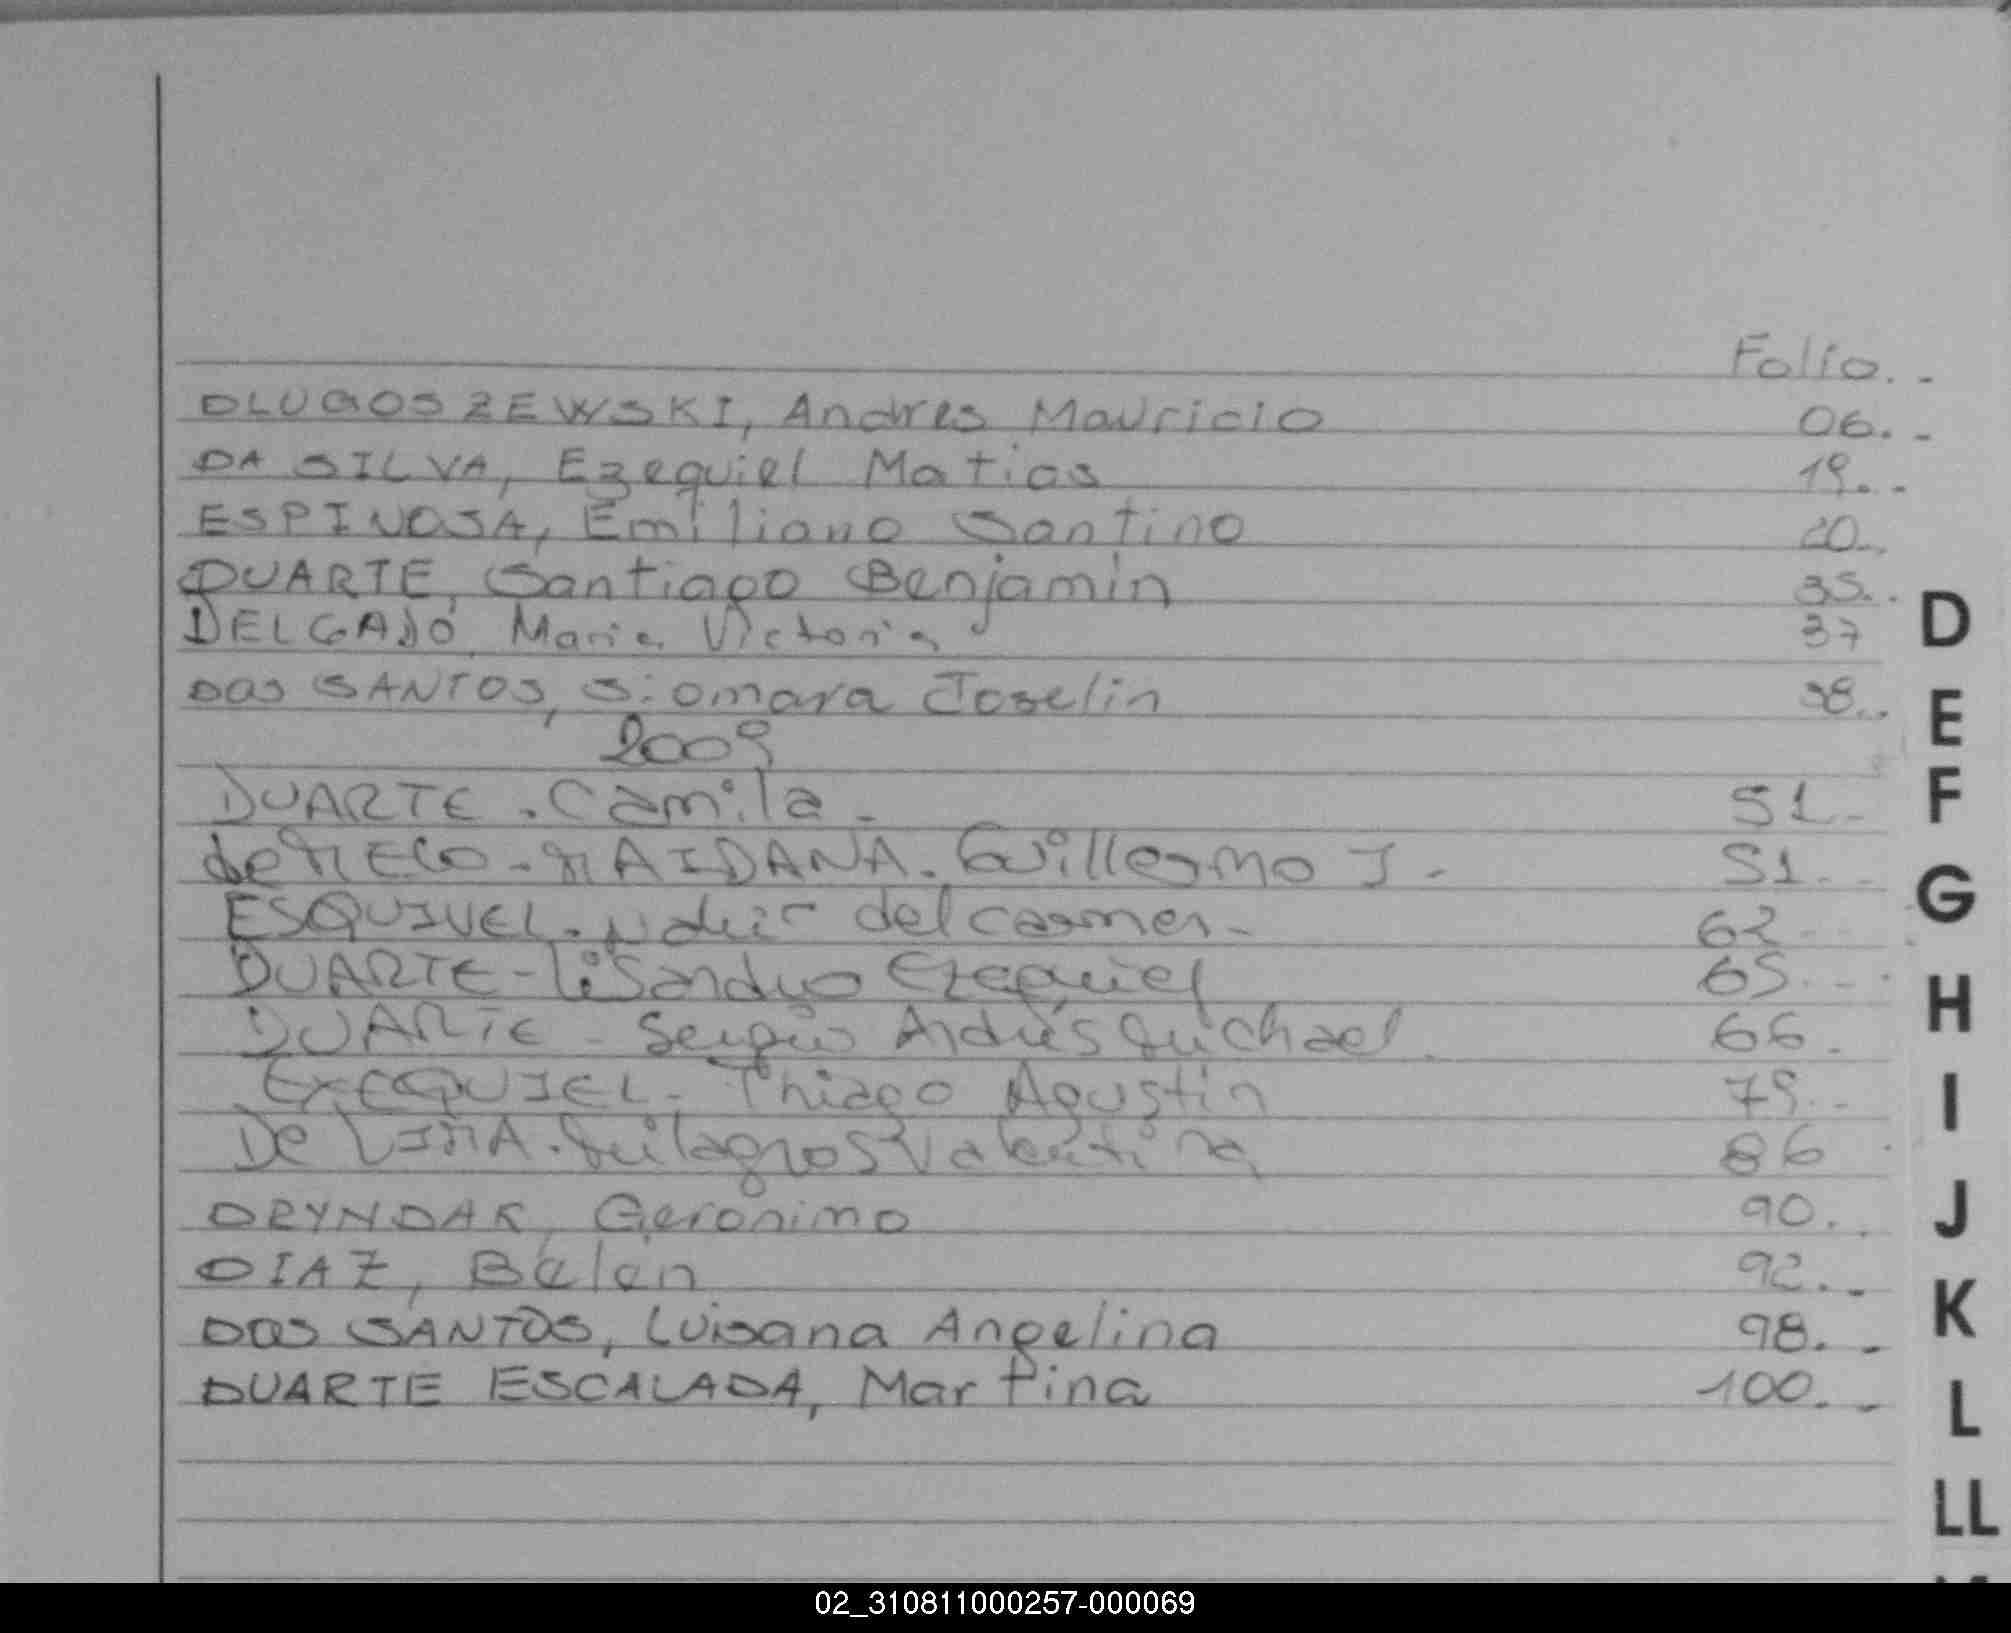 Folio. -
DLUGOSZEWSKI, Andres Mauricio 06. -
DA SILVA, Ezequiel Matias 19. -
ESPINOSA, Emiliano Santino 20.
DUARTE, Santiago Benjamin 35. -
DELGADO, Maria Victoria 37
DAS SANTOS, Siomara Joselin 38. -
2009
DUARTE. Camila - 51 -
de MELO - MAIDANA. Guillermo J - 51 -
ESQUIVEL. del Carmen - 62
DUARTE - Lisandro Ezequiel 65
DUARTE - Sergio Andrés Michael 66.
EXEQUIEL. Thiago Agustin 79
De LIMA. Milagros Valentina 86
DRYNDAK, Geronimo 90.
DIAZ, Belen 92. -
DOS SANTOS, Luisana Angelina 98. -
DUARTE ESCALADA, Martina 100. -
D
E
F
G
H
I
J
K
L
LL
02_310811000257-000069